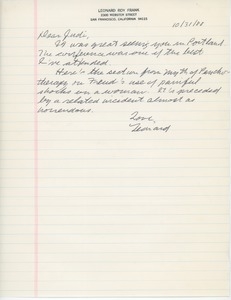 LEONARD ROY FRANK
2300 WEBSTER STREET
SAN FRANCISCO, CALIFORNIA 94115
10/31/88
Dear Judi,
It was great seeing you in Portland.
The conference was one of the best
I've attended.
Here's the section from Myth of Psycho-
therapy on Freud's use of painful
shocks on a woman. It's preceded
by a related incident almost as
horrendous.
Love,
Leonard